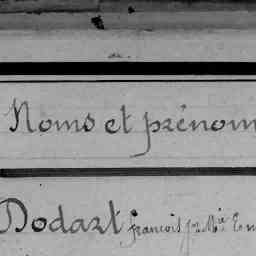 Noms et prénom
Dodart francois